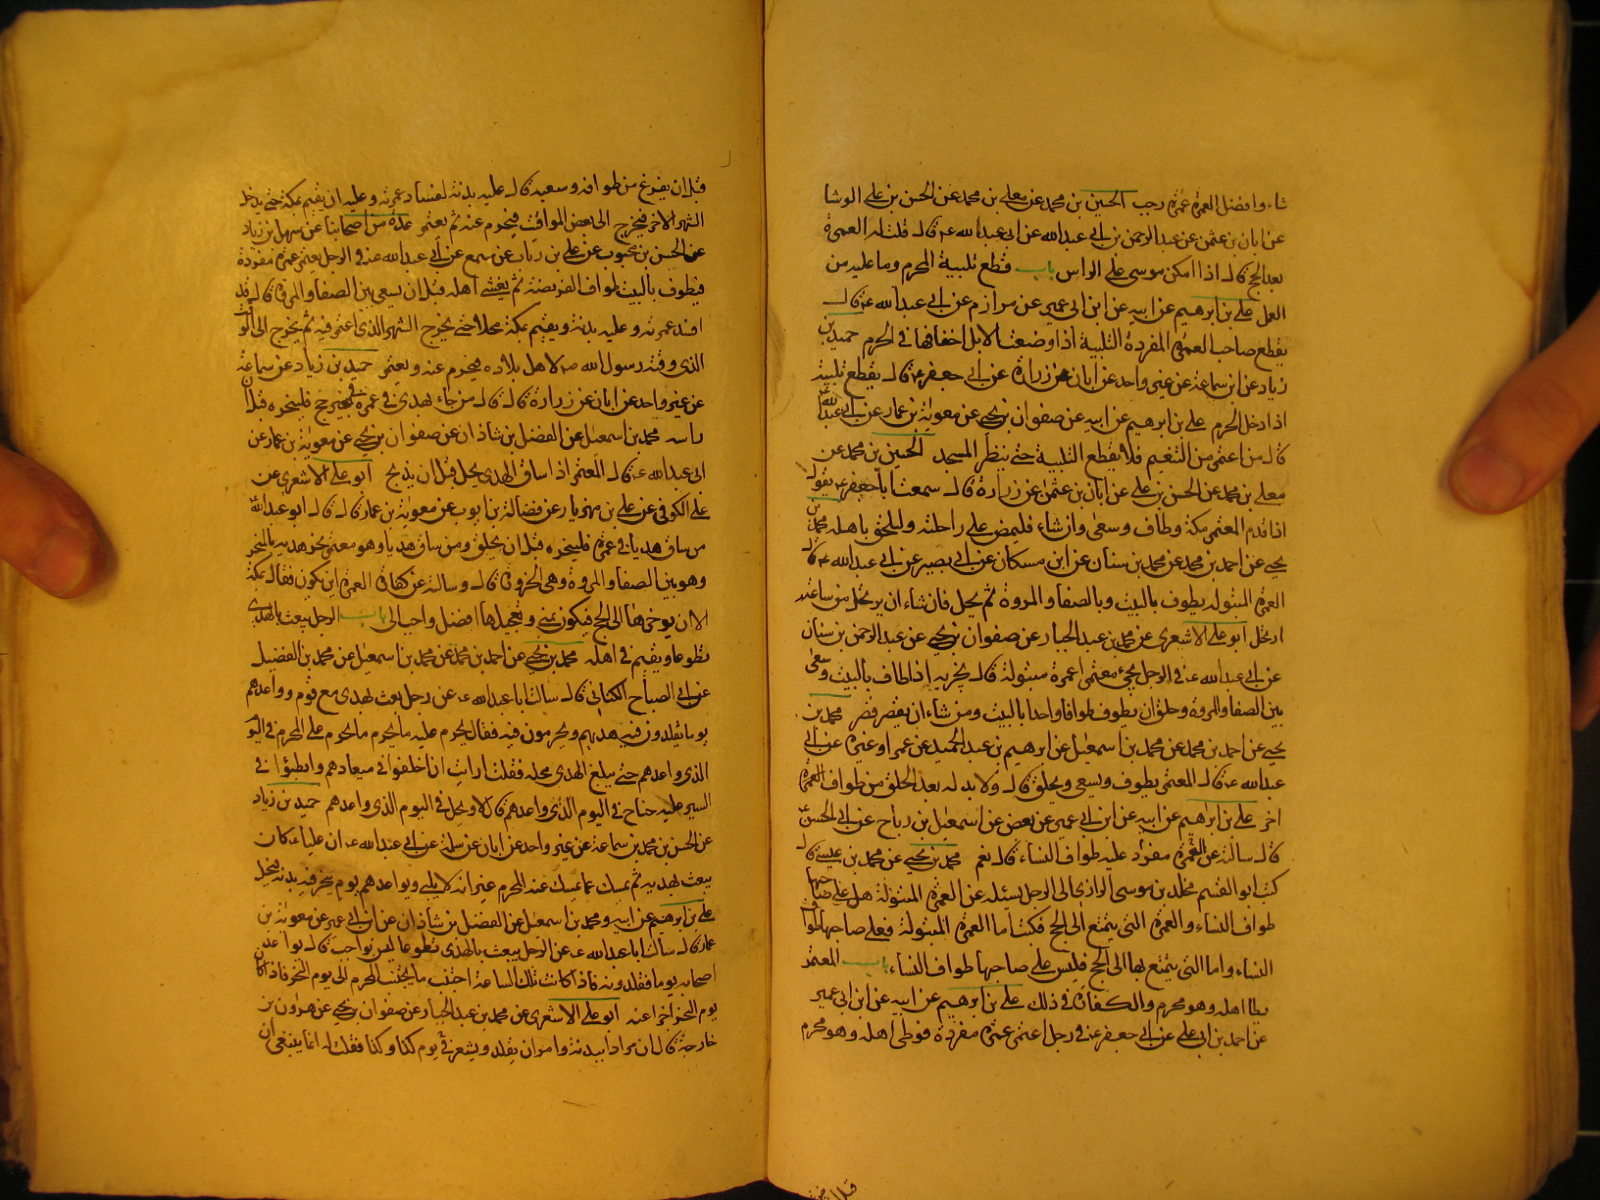 شاء وافضل العمرة عمرة رجب الحسين بن محمد عن معلى بن محمد عن الحسن بن على الوشا
عن ابان بن عثمن عن عبد الرحمن بن ابى عبدالله عن ابى عبدالله ع قال قلت له العمرة
بعد الحج قال اذا امكن موسى على الراس باب قطع تلبية المحرم وما عليه من
العمل على بن ابرهيم عن ابيه عن ابن ابى عمير عن مرازم عن ابى عبدالله ع قال
يقطع صاحب العمرة المفردة التلبية اذا وضعت الابل اخفافها فى الحرم حميد بن
زياد عن ابن سماعة عن غير واحد عن ابان عن زرارة عن ابى جعفر ع قال يقطع تلبية
اذا دخل الحرم على بن ابرهيم عن ابيه عن صفوان بن يحيى عن معوية بن عمار عن ابى عبدالله
قال من اعتمر من التنعيم فلا يقطع التلبية حتى ينظر المسجد الحسين بن محمد عن
معلى بن محمد عن الحسن بن على عن ابان بن عثمن عن زرارة قال سمعت ابا جعفر ع يقول
اذا قدم المعتمر مكة وطاف وسعى وان شاء فليمض على راحلته وليلحق باهله محمد بن
يحيى عن احمد بن محمد عن محمد بن سنان عن ابن مسكان عن ابى بصير عن ابى عبدالله ع قال
العمرة المبتولة يطوف بالبيت وبالصفا والمروة ثم يحل فان شاء ان يرتحل من ساعته
ارتحل ابو على الاشعرى عن محمد بن عبد الجبار عن صفوان بن يحيى عن عبد الرحمن بن سنان
عن ابى عبدالله ع فى الرجل يجىء معتمرا عمرة مبتولة قال يجزيه اذا طاف بالبيت وسعى
بين الصفا والمروة وحلق ان يطوف طوافا واحدا بالبيت ومن شاء ان يقصر قصر محمد بن
يحيى عن احمد بن محمد عن محمد بن اسمعيل عن ابرهيم بن عبد الحميد عن عمر او غيره عن ابى
عبدالله ع قال المعتمر يطوف ويسعى ويحلق قال ولا بد له بعد الحلق من طواف العمرة
اخر على بن ابرهيم عن ابيه عن ابن ابى عمير عن بعض عن اسمعيل بن رباح عن ابى الحسن ع
قال سالته عن العمرة مفرد عليه طواف النساء قال نعم محمد بن يحيى عن محمد بن عيسى قال
كتب ابو القسم مخلد بن موسى الرازى الى الرجل يسئله عن العمرة المبتولة هل على صاحبها
طواف النساء والعمرة التى يتمتع الى الحج فكتب اما العمرة المبتولة فعلى صاحبها طواف
النساء واما التى يتمتع بها الى الحج فليس على صاحبها طواف النساء باب المعتمر
يطا اهله وهو محرم والكفارة فى ذلك على بن ابرهيم عن ابيه عن ابن ابى عمير
عن احمد بن ابى على عن ابى جعفر ع فى رجل اعتمر عمرة مفردة فوطى اهله وهو محرم
قبل ان يفرغ من طوافه وسعيه قال عليه بدنة لفساد عمرته وعليه ان يقيم بمكة حتى يدخل
الشهر الاخر فيخرج الى بعض المواقيت فيحرم عنه ثم يعتمر عدة من اصحابنا عن سهل بن زياد
عن الحسن بن محبوب عن على بن رياب عن مسمع عن ابى عبدالله ع فى الرجل يعتمر عمرة مفردة
فيطوف بالبيت طواف الفريضة ثم يغشى اهله قبل ان يسعى بين الصفا والمروة قال قد
افسد عمرته وعليه بدنة ويقيم بمكة محلا حتى يخرج الشهر الذى اعتمر فيه ثم يخرج الى الوقت
الذى وقته رسول الله ص لاهل بلاده فيحرم عنه ويعتمر حميد بن زياد عن ابن سماعة
عن غير واحد عن ابان عن زرارة قال قال من جاء بهدى فى عمرة فى غير حج فلينحره قبل ان
راسه محمد بن اسمعيل عن الفضل بن شاذان عن صفوان بن يحيى عن معوية بن عمار عن
ابى عبدالله ع قال المعتمر اذا ساق الهدى يحل قبل ان يذبح ابو على الاشعرى عن
على الكوفى عن على بن مهزيار عن فضالة بن ايوب عن معوية بن عمار قال قال ابو عبدالله
من ساق هديا فى عمرة فلينحره قبل ان يحلق ومن ساق هديا وهو معتمر نحر هديه بالمنحر
وهو بين الصفا والمروة وهى الحزورة قال وسالته عن كفارة العمرة اين يكون فقال بمكة
الا ان يؤخرها الى الحج فيكون بمنى وتعجيلها افضل واحب الى باب الرجل يبعث بالهدى
تطوعا ويقيم فى اهله محمد بن يحيى عن احمد بن محمد عن محمد بن اسمعيل عن محمد بن الفضيل
عن ابى الصباح الكنانى قال سالت ابا عبدالله ع عن رجل بعث بهدى مع قوم وواعدهم
يوما يقلدون فيه هديهم ويحرمون فيه فقال يحرم عليه ما يحرم على المحرم فى اليوم
الذى واعدهم حتى يبلغ الهدى محله فقلت ارايت ان اخلفوا فى ميعادهم وابطؤا فى
السير عليه جناح فى اليوم الذى واعدهم قال لا ويحل فى اليوم الذى واعدهم حميد بن زياد
عن الحسن بن محمد بن سماعة عن غير واحد عن ابان عن سلمة عن ابى عبدالله ع ان عليا ع كان
يبعث بهديه ثم يمسك عما يمسك عنه المحرم غير انه لا يلبى ويواعدهم يوم ينحر فيه بدنه فيحل
على بن ابرهيم عن ابيه ومحمد بن اسمعيل عن الفضل بن شاذان عن ابن ابى عمير عن معوية بن
عمار قال سالت ابا عبدالله ع عن الرجل يبعث بالهدى تطوعا ليس بواجب قال يواعد
اصحابه يوما فيقلدونه فاذا كانت تلك الساعة اجتنب ما يجتنب المحرم الى يوم النحر فاذا كان
يوم النحر اجزا عنه ابو على الاشعرى عن محمد بن عبد الجبار عن صفوان بن يحيى عن هرون بن
خارجة قال ان مرادا بعث ببدنة وامر ان يقلد ويشعر فى يوم كذا وكذا فقلت له انما ينبغى ان